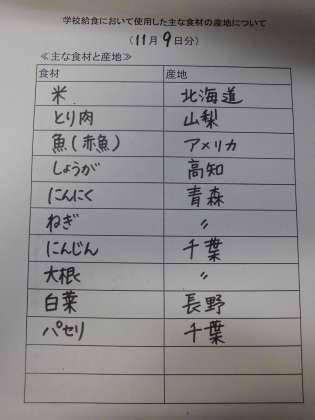 学校給食において使用した主な食材の産地について
（11月9日分）
≪主な食材と産地≫
食材 産地
米 北海道
とり肉 山梨
魚(赤魚) アメリカ
しょうが 高知
にんにく 青森
ねぎ 〃
にんじん 千葉
大根 〃
白菜 長野
パセリ 千葉